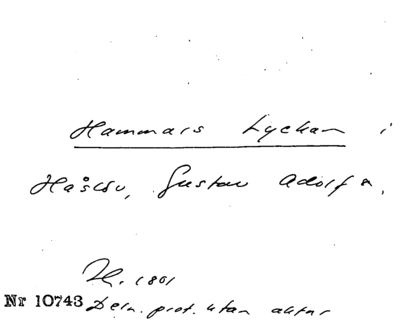 Hammars Lyckan i
Håslöv, Gustav Adolf s.
1801
Nr 10743 prot. utan aktnr